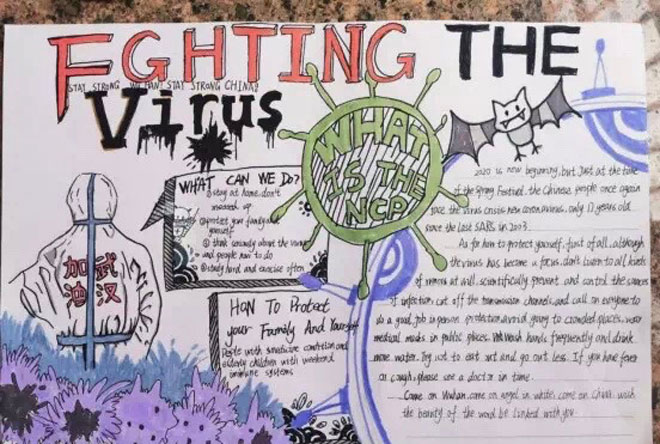 FGHTING THE
STAY STRONG WUHAN! STAY STRONG CHINA!!
Virus
WHAT IS THE NCP
WHAT CAN WE DO?
① stay at home. don't
up
protect your family and
yourself
③ think seriously about the virus
and people how to do
④ study hard and exercise often
武汉
加油
HOW To Protect
your Framily And Yourself
People with
elderly children with weekend
immune systems
2020 is now beginning, but Just at the time
of the Spring Festival. the Chinese people once again
race the virus crisis new coronavirus, only 17 years old
since the Last SARS in 2003.
As for how to protect yourself, first of all, although
the virus has become a focus, don't listen to all kinds
of rumors at will, scientifically prevent and control the sources
of infection, cut off the transmission channels, and call on everyone to
do a good job in person protection avoid going to crowded places, wear
medical masks in public places. Wash hands frequently and drink
more water. Try not to eat out and go out less. If you have fever
or cough, please see a doctor in time.
Come on Wuhan, come on angel in white, come on China. wash
the beauty of the word be linked with you